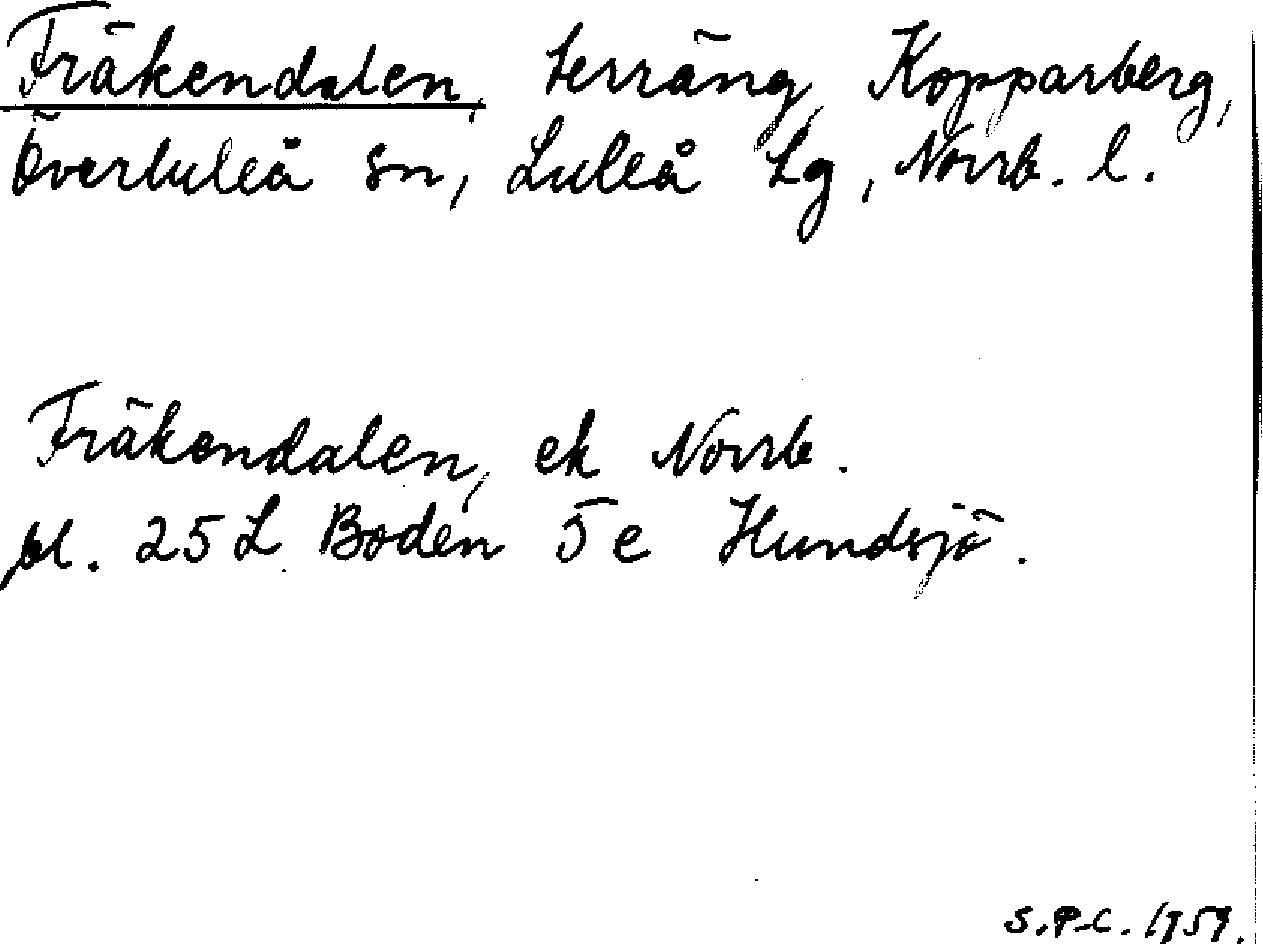 Fräkendalen, terräng, Kopparberg,
Överluleå sn, Luleå tg, Norrb. l.
Fräkendalen, ek Norrb.
bl. 25 L Boden 5 e Hundsjö.
S.P-C. 1959.